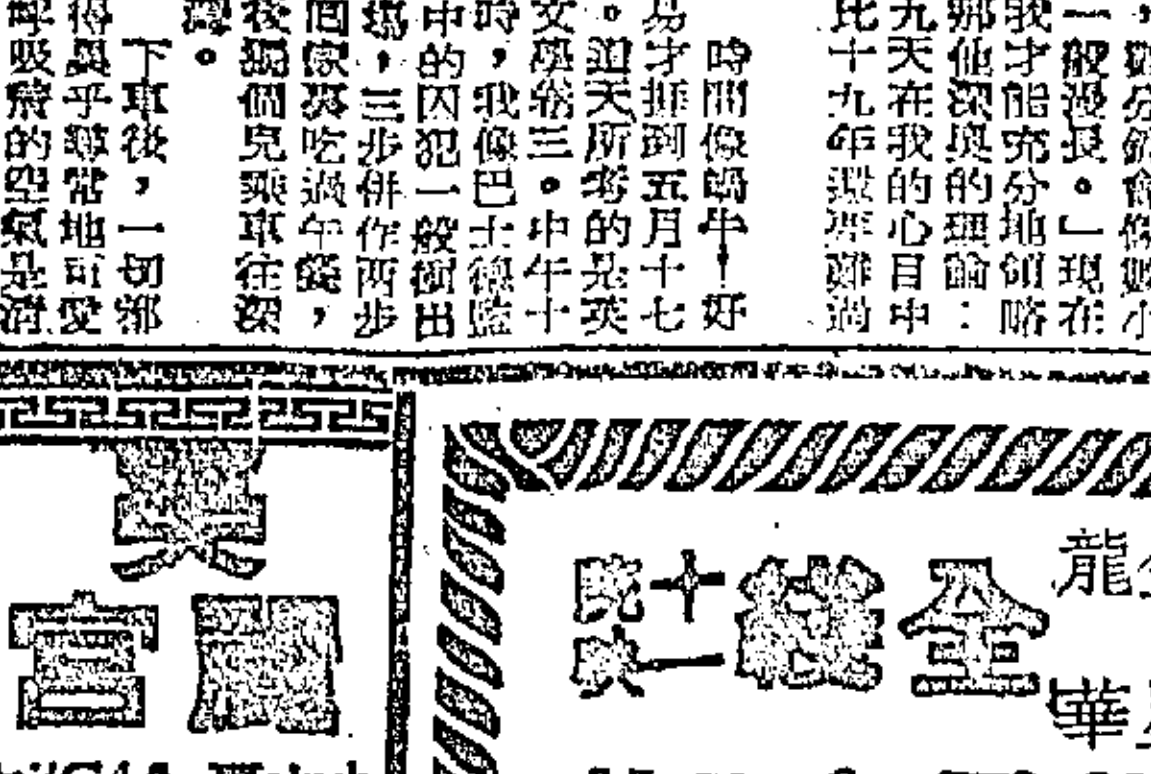 一般漫長。」現在
我才能充分地領略
那他深奧的理論：
九天在我的心目中
比十九年還要難過
時間像蝸牛！好
易才捱到五月十七
。這天所考的是英
文學卷三。中午十
時，我像巴士德監
中的囚犯一般衝出
場，三步併作兩步
回家裏吃過午餐，
後獨個兒乘車往深
灣。
下車後，一切都
得異乎尋常地可愛
呼吸着的空氣是清
龍
華
金
十一
院映
宮